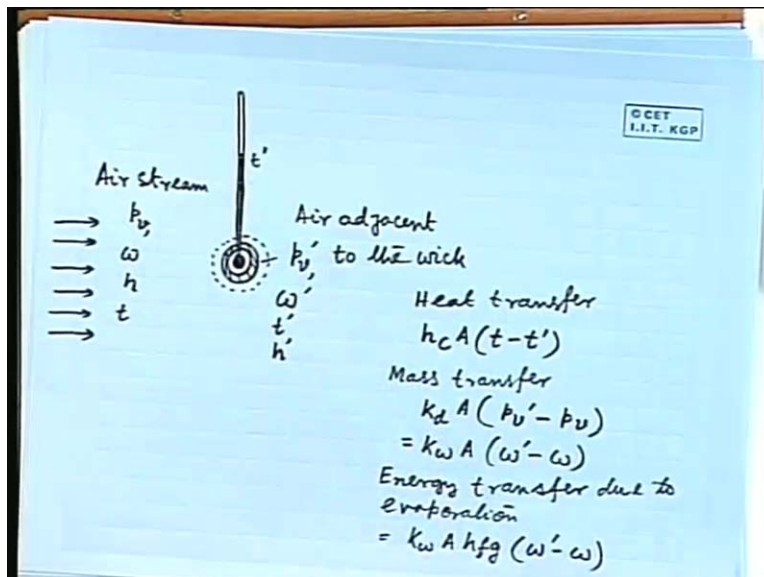 © CET
I.I.T. KGP
t'
Air stream
pᵥ,
ω
h
t
Air adjacent
pᵥ', to the wick
ω'
t'
h'
Heat transfer
h_c A (t - t')
Mass transfer
k_d A (pᵥ' - pᵥ)
= k_ω A (ω' - ω)
Energy transfer due to
evaporation
= k_ω A hfg (ω' - ω)